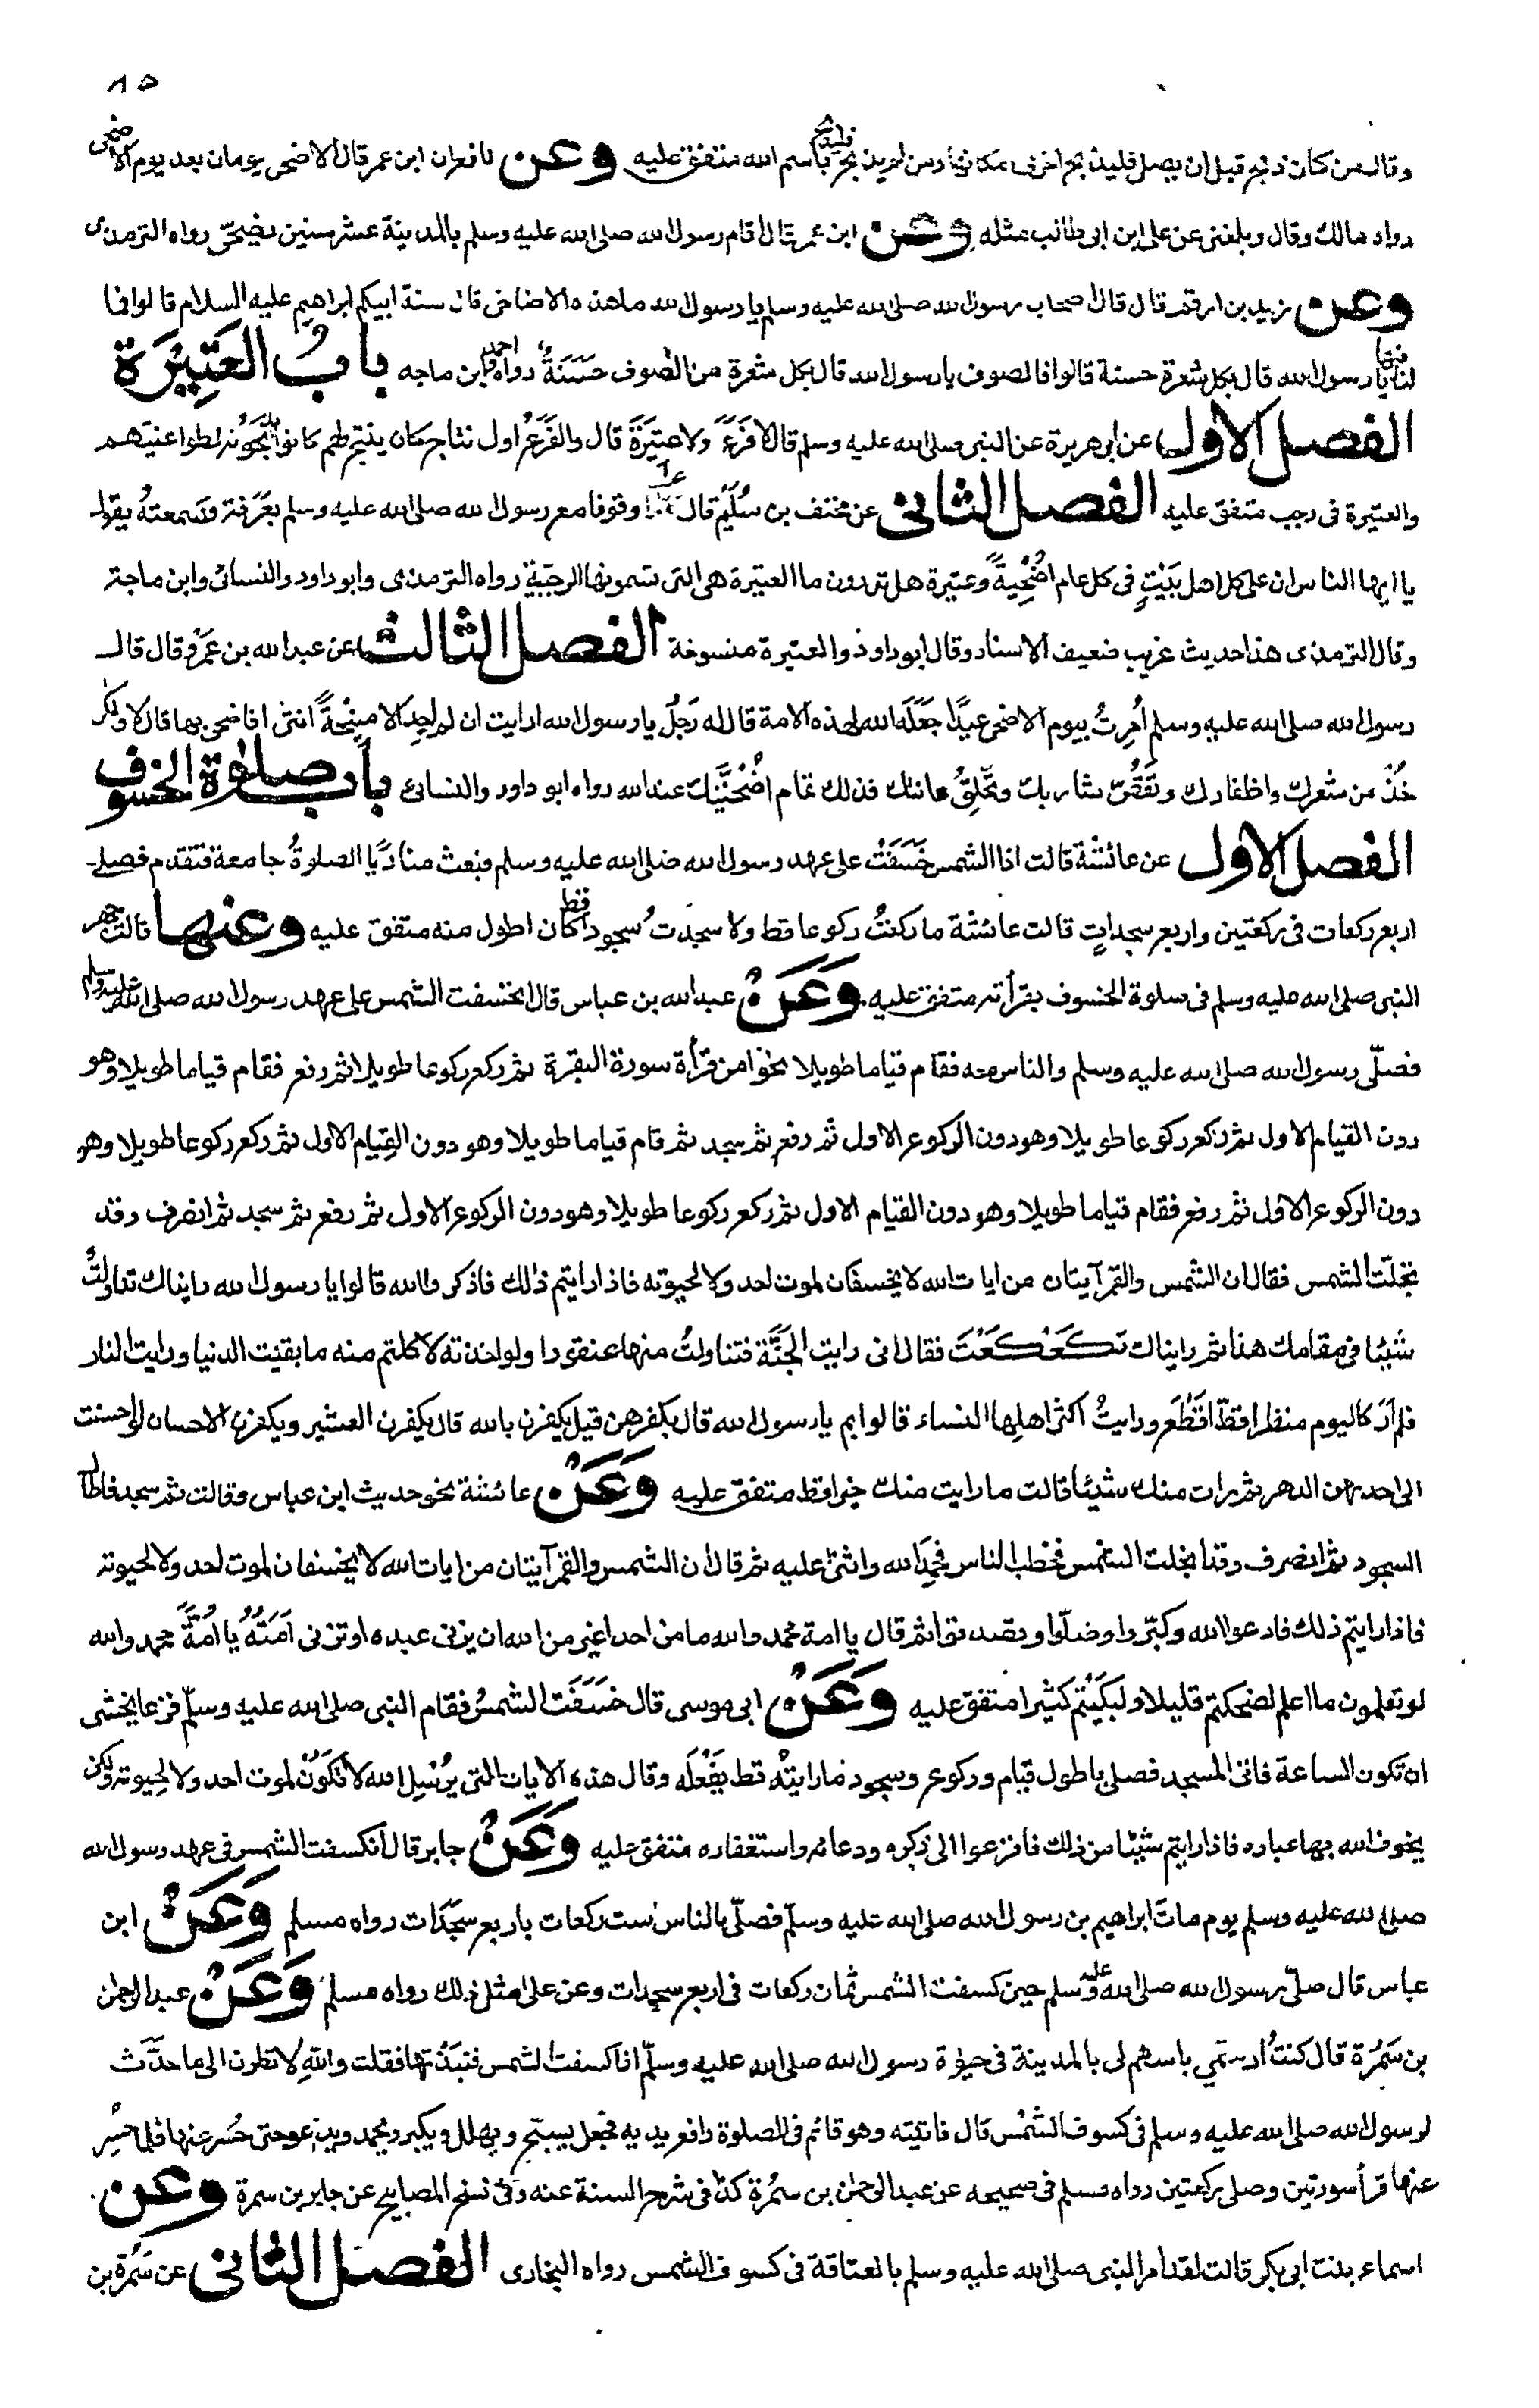 ٨٥
وقال من كان ذبح قبل ان يصلى فليذبح اخرى مكانها ومن لم يذبح فليذبح باسم الله متفق عليه وعن نافع ان ابن عمر قال الاضحى يومان بعد يوم الاضحى
رواه مالك وقال وبلغنى عن على ابن ابى طالب مثله وعن ابن عمر قال اقام رسول الله صلى الله عليه وسلم بالمدينة عشر سنين يضحّى رواه الترمذى
وعن زيد بن ارقم قال قال اصحاب رسول الله صلى الله عليه وسلم يا رسول الله ما هذه الاضاحى قال سنة ابيكم ابراهيم عليه السلام قالوا فما
لنا فيها يا رسول الله قال بكل شعرة حسنة قالوا فالصوف يا رسول الله قال بكل شعرة من الصوف حَسَنَةٌ رواه احمد وابن ماجه بابُ العَتِيْرَة
الفصل الاول عن ابى هريرة عن النبى صلى الله عليه وسلم قال لا فَرَعَ ولا عَتِيْرَةَ قال والفَرَعُ اول نتاج كان ينتج لهم كانوا يذبحونه لطواغيتهم
والعتيرة فى رجب متفق عليه الفصل الثانى عن مخنف بن سُلَيْم قال كنا وقوفا مع رسول الله صلى الله عليه وسلم بعَرَفة فسمعتهُ يقول
يا ايها الناس ان على كل اهل بَيْتٍ فى كل عام اُضْحِيةً وعتيرة هل تدرون ما العتيرة هى التى تسمونها الرجبيّة رواه الترمذى وابو داود والنسائى وابن ماجة
وقال الترمذى هذا حديث غريب ضعيف الاسناد وقال ابو داود والعتيرة منسوخة الفصل الثالث عن عبد الله بن عَمْرو قال قال
رسول الله صلى الله عليه وسلم اُمِرتُ بيوم الاضحى عيدًا جَعَلَه الله لهذه الامة قال له رَجلٌ يا رسول الله ارايت ان لم اجد الا مَنِيْحةً انثى افاضحى بها قال لا ولكن
خُذْ من شعرك واظفارك وتَقُصّ شاربك وتحلِقُ عانتك فذلك تمام اُضْحيَّتِك عند الله رواه ابو داود والنسائى باب صلوة الخسوف
الفصل الاول عن عائشة قالت اذا الشمس خَسَفَتْ على عهد رسول الله صلى الله عليه وسلم فبعث مناديًا الصلوةُ جامعة فتقدم فصلى
اربع ركعات فى ركعتين واربع سجداتٍ قالت عائشة ما ركعتُ ركوعا قط ولا سجدتُ سجودا قط كان اطول منه متفق عليه وعنها قالت جهر
النبى صلى الله عليه وسلم فى سلوة الخسوف بقرأته متفق عليه وَعَنْ عبد الله بن عباس قال انخسفت الشمس على عهد رسول الله صلى الله عليه وسلم
فصلّى رسول الله صلى الله عليه وسلم والناس معه فقام قياما طويلا نحوا من قرأة سورة البقرة ثم ركع ركوعا طويلا ثم رفع فقام قياما طويلا وهو
دون القيام الاول ثم ركع ركوعا طويلا وهو دون الركوع الاول ثم رفع ثم سجد ثم قام قياما طويلا وهو دون القيام الاول ثم ركع ركوعا طويلا وهو
دون الركوع الاول ثم رفع فقام قياما طويلا وهو دون القيام الاول ثم ركع ركوعا طويلا وهو دون الركوع الاول ثم رفع ثم سجد ثم انصرف وقد
تجلّت الشمس فقال ان الشمس والقمر آيتان من ايات الله لا يخسفان لموت احد ولا لحيوته فاذا رايتم ذلك فاذكروا الله قالوا يا رسول الله رايناك تناولتَ
شيئا فى مقامك هذا ثم رايناك تَكَعْكَعْتَ فقال انى رايت الجَنَّة فتناولتُ منها عنقودا ولو اخذته لاكلتم منه ما بقيت الدنيا ورايت النار
فلم اَرَ كاليوم منظرا قطّ افظَعَ ورايتُ اكثر اهلِها النساء قالوا بم يا رسول الله قال بكفرهن قيل يكفرن بالله قال يكفرن العشير ويكفرن الاحسان لو احسنت
الى احدٰهن الدهر ثم رات منك شيئا قالت ما رايت منك خيرا قط متفق عليه وَعَنْ عائشة نحو حديث ابن عباس وقالت ثم سجد فاطال
السجود ثم انصرف وقد انجلت الشمس فخطب الناس فحمِد الله واثنى عليه ثم قال ان الشمس والقمر آيتان من ايات الله لا يخسفان لموت احد ولا لحيوته
فاذا رايتم ذلك فادعوا الله وكبّروا وصلّوا وتصدقوا ثم قال يا امة محمد والله ما من احد اغير من الله ان يزنى عبده او تزنى اَمَتُهُ يا اُمَّةَ محمد والله
لو تعلمون ما اعلم لضحكتم قليلا ولبكَيْتُم كثيرا متفق عليه وَعَنْ ابى موسى قال خسَفَت الشمسُ فقام النبى صلى الله عليه وسلّم فزعا يخشى
ان تكون الساعة فاتى المسجد فصلى باطول قيام وركوع وسجود ما رايتهُ قط يَفْعله وقال هذه الايات التى يُرْسِل الله لا تكوْنُ لموت احد ولا لحيوته ولكن
يخوف الله بها عباده فاذا رايتم شيئا من ذلك فافزعوا الى ذكره ودعائه واستغفاره متفق عليه وَعَنْ جابر قال انكسفت الشمس فى عهد رسول الله
صلى الله عليه وسلم يوم ماتَ ابراهيم بن رسول الله صلى الله عليه وسلّم فصلّى بالناس ست ركعات باربع سجَدَات رواه مسلم وَعَنْ ابن
عباس قال صلّى رسول الله صلى الله عليه وسلم حين كسفت الشمس ثمان ركعات فى اربع سجدات وعن على مثل ذلك رواه مسلم وَعَنْ عبد الرحمٰن
بن سَمُرة قال كنتُ ارتمى باسهم لى بالمدينة فى حيٰوة رسول الله صلى الله عليه وسلّم اذا كسفت الشمس فنبَذْتها فقلت واللهِ لانظرن الى ما حدَّث
لرسول الله صلى الله عليه وسلم فى كسوف الشَمْس قال فاتيته وهو قائم فى الصلوة رافع يديه فجَعل يسبّح ويهلل ويكبر ويحمد ويدعو حتى حُسر عنها فلما حُسِر
عنها قرأ سورتين وصلى ركعتين رواه مسلم فى صحيحه عن عبد الرحمٰن بن سمُرة كذا فى شرح السنة عنه وفى نسخ المصابيح عن جابر بن سمرة وعن
اسماء بنت ابى بكر قالت لقد امر النبى صلى الله عليه وسلم بالعتاقة فى كسوف الشمس رواه البخارى الفصل الثانى عن سَمُرة بن